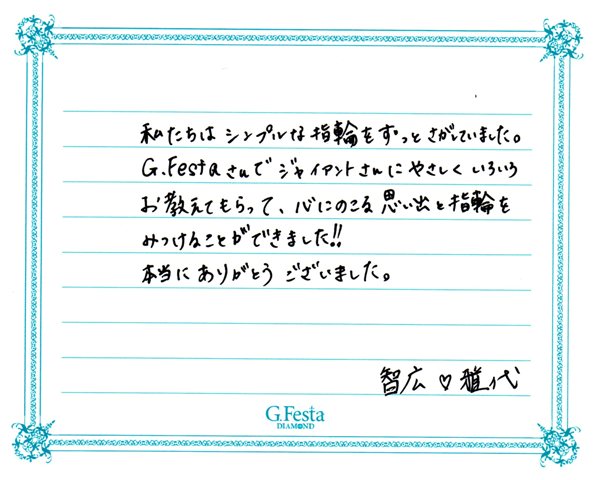 私たちは シンプルな指輪をずっとさがしていました。
G.Festaさんでジャイアントさんにやさしくいろいろ
お教えてもらって、心にのこる思い出と指輪を
みつけることができました!!
本当にありがとうございました。
智広♡雅代
G.Festa
DIAMOND